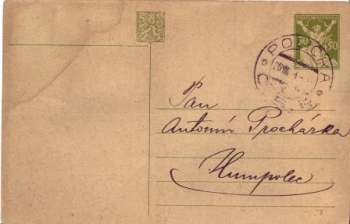 50 50
POLIČKA
Pan
Antonín Procházka
Humpolec